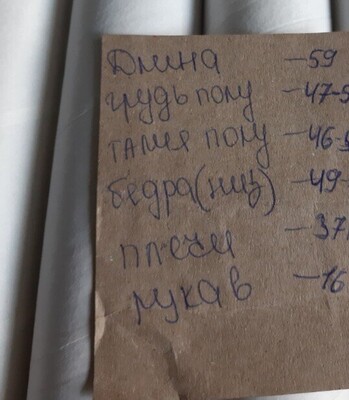 Длина – 59
грудь полу – 47-5
талия полу – 46-5
бедра(низ) – 49-
плечи – 37
рукав – 16